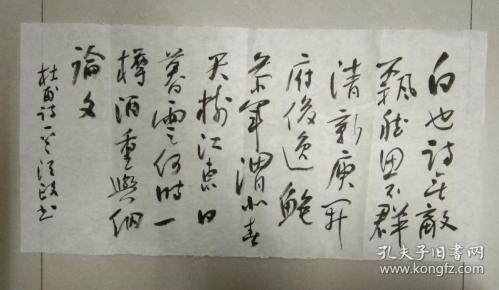 白也诗无敌
飘然思不群
清新庾开
府俊逸鲍
参军渭北春
天树江东日
暮云何时一
樽酒重与细
論文
杜甫诗一首
书
孔夫子旧书网
www.kongfz.com